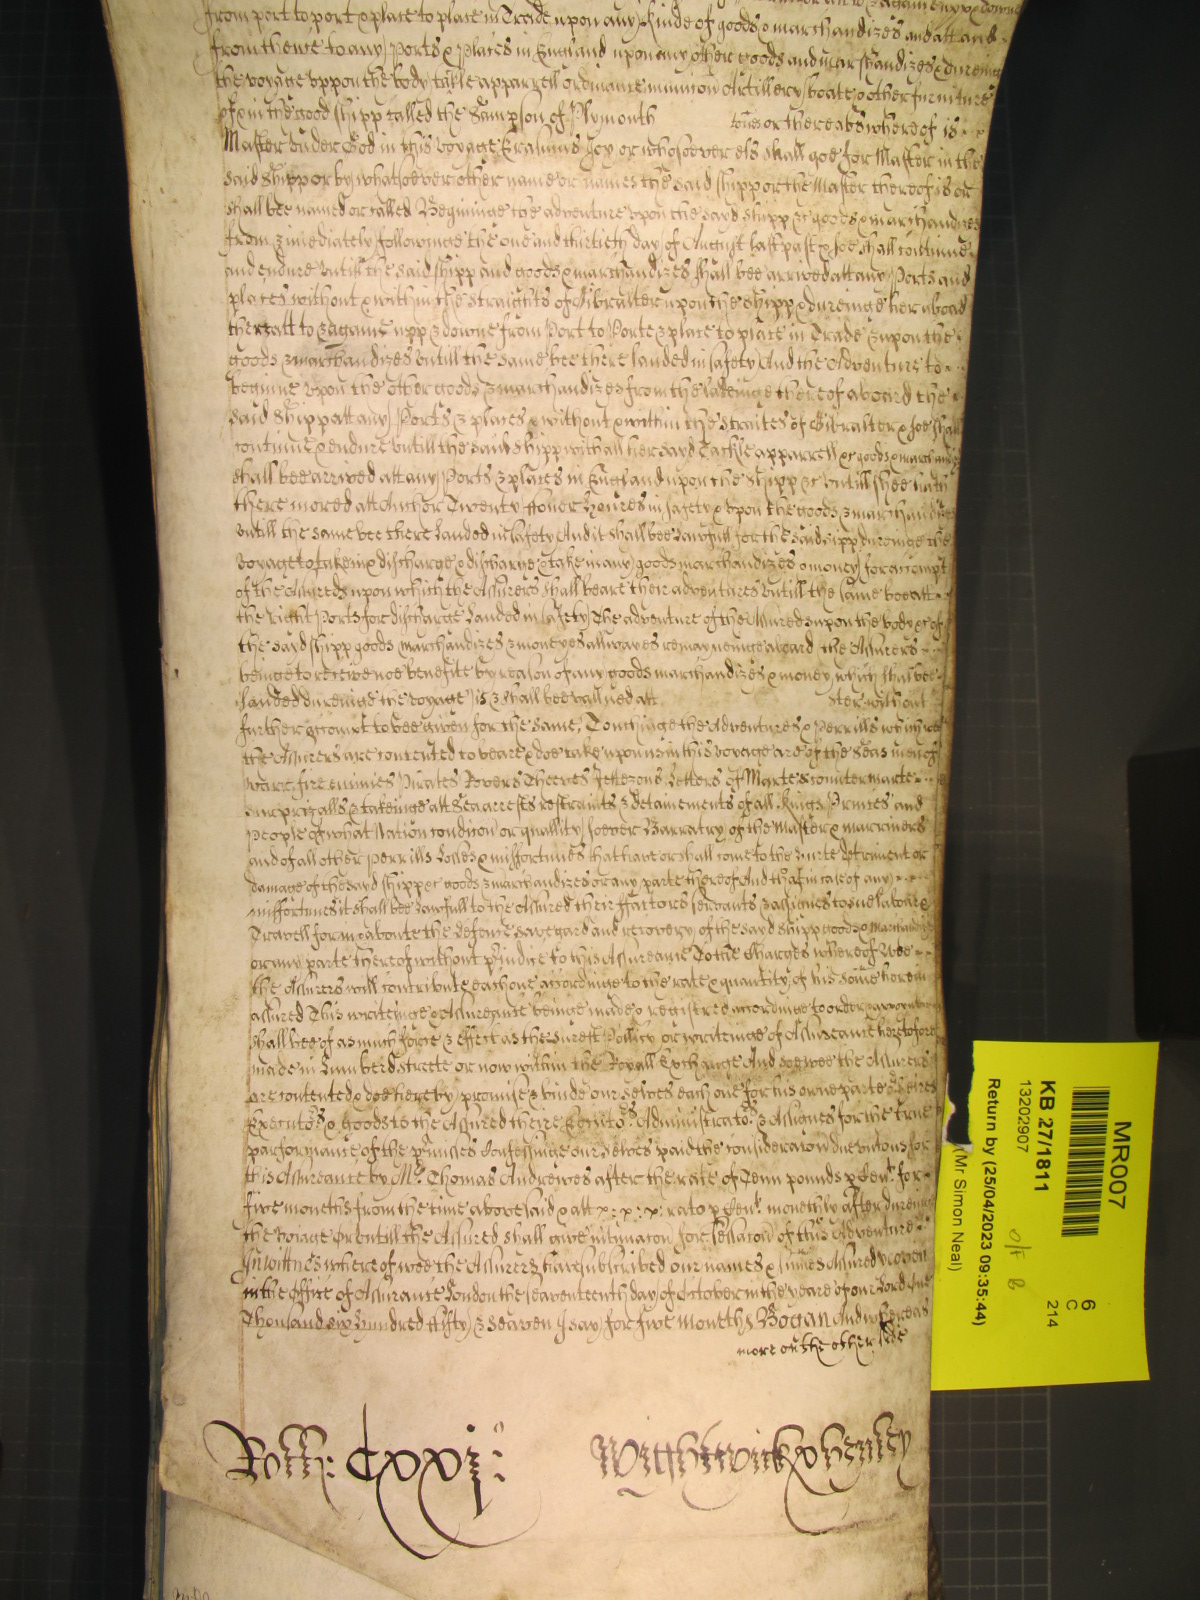 from port to port & place to place in Trade upon any Kinde of goods & marchandizes and att and
from thence to any Ports & places in England upon any other goods and marchandizes & dureing
the voyage uppon the body takle apparrell ordinance munition Artillery boate & other furniture
of & in the good shipp called the Sampson of Plymouth tons or thereabs whereof is
Master under God in this voyage Erasmus Joy or whosoever els shall goe for Master in the
said Shipp or by whatsoever other name or names the said shipp or the Master thereof is or
shall bee named or called Beginninge the adventure upon the sayd Shipp &c goods & marchandizes
from & imediately followinge the one and thirtieth day of August last past & soe shall continue
and endure untill the said shipp and goods & marchandizes shall bee arrived att any Ports and
places without & within the straights of Gibralter upon the shipp & dureinge her aboad
there att to & againe upp & downe from Port to Porte & place to place in Trade & upon the
goods & marchandizes untill the same bee there landed in safety And the Adventure to
beginne upon the other goods & marchandizes from the ladeinge thereof aboard the
said Shipp att any Ports & places without & within the Straites of Gibralter & soe shall
continue & endure untill the said shipp with all her sayd Tackle apparrell &c goods & marchandizes
shall bee arrived att any Ports & places in England upon the Shipp &c untill shee hath
there mored att Anchor Twenty ffower Houres in safety & upon the goods & marchandizes
untill the same bee there Landed in Safety And it shall bee Lawfull for the said shipp dureinge the
voyage to take in & discharge & discharge & take in any goods marchandizes & money for accompt
of the Assureds upon which the Assurers shall beare their adventures untill the same bee att
the right Ports for discharge Landed in safety The adventure of the Assureds upon the body &c of
the said shipp goods marchandizes & moneyes allwayes remayneinge aboard the Assurers
beinge to receive noe benefitt by reason of any goods marchandizes & money which shall bee
Landed dureinge the voyage is & shall bee vallued att ster without
further account to bee given for the same, Touchinge the Adventures & Perrills which wee
the Assurers are contented to beare & doe take upon us in this voyage are of the Seas men of
warr, fire enimies Pirates Rovers Theeves Jettezons Letters of Marte & countermarte
surprizalls & takeinge att Sea arrests restraints & detainements of all Kings Princes and
People of what Nation condicon or quallity soever Barratry of the Master & marriners
and of all other perrills Losses & misfortunes that have or shall come to the hurte detriment or
damage of the sayd shipp &c goods & marchandizes or any parte thereof And that in case of any
misfortunes it shall bee Lawfull to the Assured their ffactors servants & assignes to sue labour &
Travell for in & aboute the defence savegard and recovery of the sayd Shipp goods & Marchandizes
or any parte thereof without prejudice to this Assureance To the Charges whereof wee
the Assurers will contribute each one accordinge to the rate & quantity of his some herein
assured This writeinge & Assureance beinge made & registred accordinge to order
shall bee of as much force & effect as the surest Pollicy or writeinge of Assureance heretofore
made in Lumberd streete or now within the Royall Exchange And soe wee the Assurers
are contented & doe hereby promise & binde our selves each one for his owne parte heires
Executors & goods to the Assured theire Executors Administrators & Assignes for the true
performance of the premises Confessinge our selves paid the consideracon due unto us for
this Assureance by Mr. Thomas Andrewes after the rate of Tenn pounds p Cent. for
five moneths from the time abovesaid & att rato p Cent. monethly after dureing
the voiage or untill the Assured shall give intimacon for Cessacon of this Adventure
In wittnes whereof wee the Assurers have subscribed our names & summes Assured
in the Office of Assurance London the seaventeenth day of October in the yeare of our Lord one
Thousand six hundred ffifty & seaven I say for five moneths Bogan And whereas
more on the other side
Rotlo: Cxxj:
Wightwick & Henley
MR007
KB 27/1811
13202907
Return by (25/04/2023 09:35:44)
(Mr Simon Neal)
6
C
214